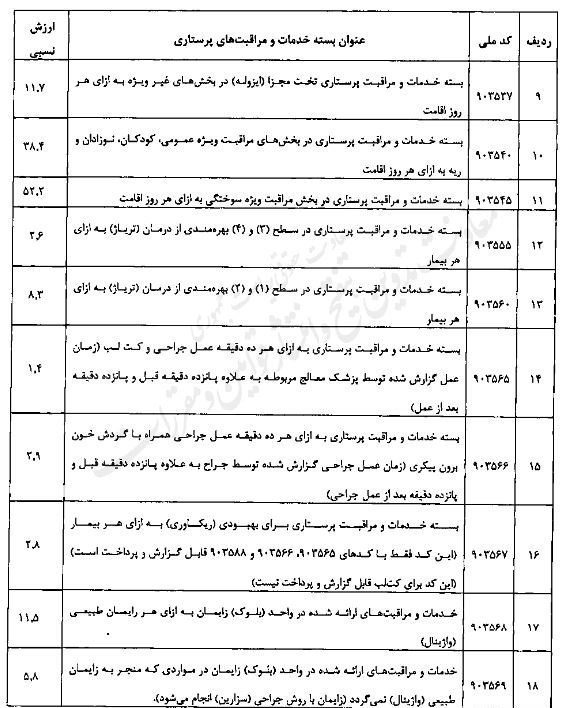 ردیف کد ملی عنوان بسته خدمات و مراقبت‌های پرستاری ارزش نسبی
۹ ۹۰۳۵۳۷ بسته خدمات و مراقبت پرستاری تخت مجزا (ایزوله) در بخش‌های غیر ویژه به ازای هر ۱۱,۷
روز اقامت
۱۰ ۹۰۳۵۴۰ بسته خدمات و مراقبت پرستاری در بخش‌های مراقبت ویژه عمومی، کودکان، نوزادان و ۳۸,۴
ریه به ازای هر روز اقامت
۱۱ ۹۰۳۵۴۵ بسته خدمات و مراقبت پرستاری در بخش مراقبت ویژه سوختگی به ازای هر روز اقامت ۵۲,۲
۱۲ ۹۰۳۵۵۵ بسته خدمات و مراقبت پرستاری در سطح (۳) و (۴) بهره‌مندی از درمان (تریاژ) به ازای
هر بیمار
۱۳ ۹۰۳۵۶۰ بسته خدمات و مراقبت پرستاری در سطح (۱) و (۲) بهره‌مندی از درمان (تریاژ) به ازای ۸,۳
هر بیمار
۱۴ ۹۰۳۵۶۵ بسته خدمات و مراقبت پرستاری به ازای هر ده دقیقه عمل جراحی و کت لب (زمان ۱,۴
عمل گزارش شده توسط پزشک معالج مربوطه به علاوه پانزده دقیقه قبل و پانزده دقیقه
بعد از عمل)
۱۵ ۹۰۳۵۶۶ بسته خدمات و مراقبت پرستاری به ازای هر ده دقیقه عمل جراحی همراه با گردش خون ۳,۹
برون پیکری (زمان عمل جراحی گزارش شده توسط جراح به علاوه پانزده دقیقه قبل و
پانزده دقیقه بعد از عمل جراحی)
۱۶ ۹۰۳۵۶۷ بسته خدمات و مراقبت پرستاری برای بهبودی (ریکاوری) به ازای هر بیمار ۲,۸
(این کد فقط با کدهای ۹۰۳۵۶۵، ۹۰۳۵۶۶ و ۹۰۳۵۸۸ قابل گزارش و پرداخت است)
(این کد برای کت‌لب قابل گزارش و پرداخت نیست)
۱۷ ۹۰۳۵۶۸ خدمات و مراقبت‌های ارائه شده در واحد (بلوک) زایمان به ازای هر زایمان طبیعی ۱۱,۵
(واژینال)
۱۸ ۹۰۳۵۶۹ خدمات و مراقبت‌های ارائه شده در واحد (بلوک) زایمان در مواردی که منجر به زایمان ۵,۸
طبیعی (واژینال) نمی‌گردد (زایمان با روش جراحی (سزارین) انجام می‌شود).